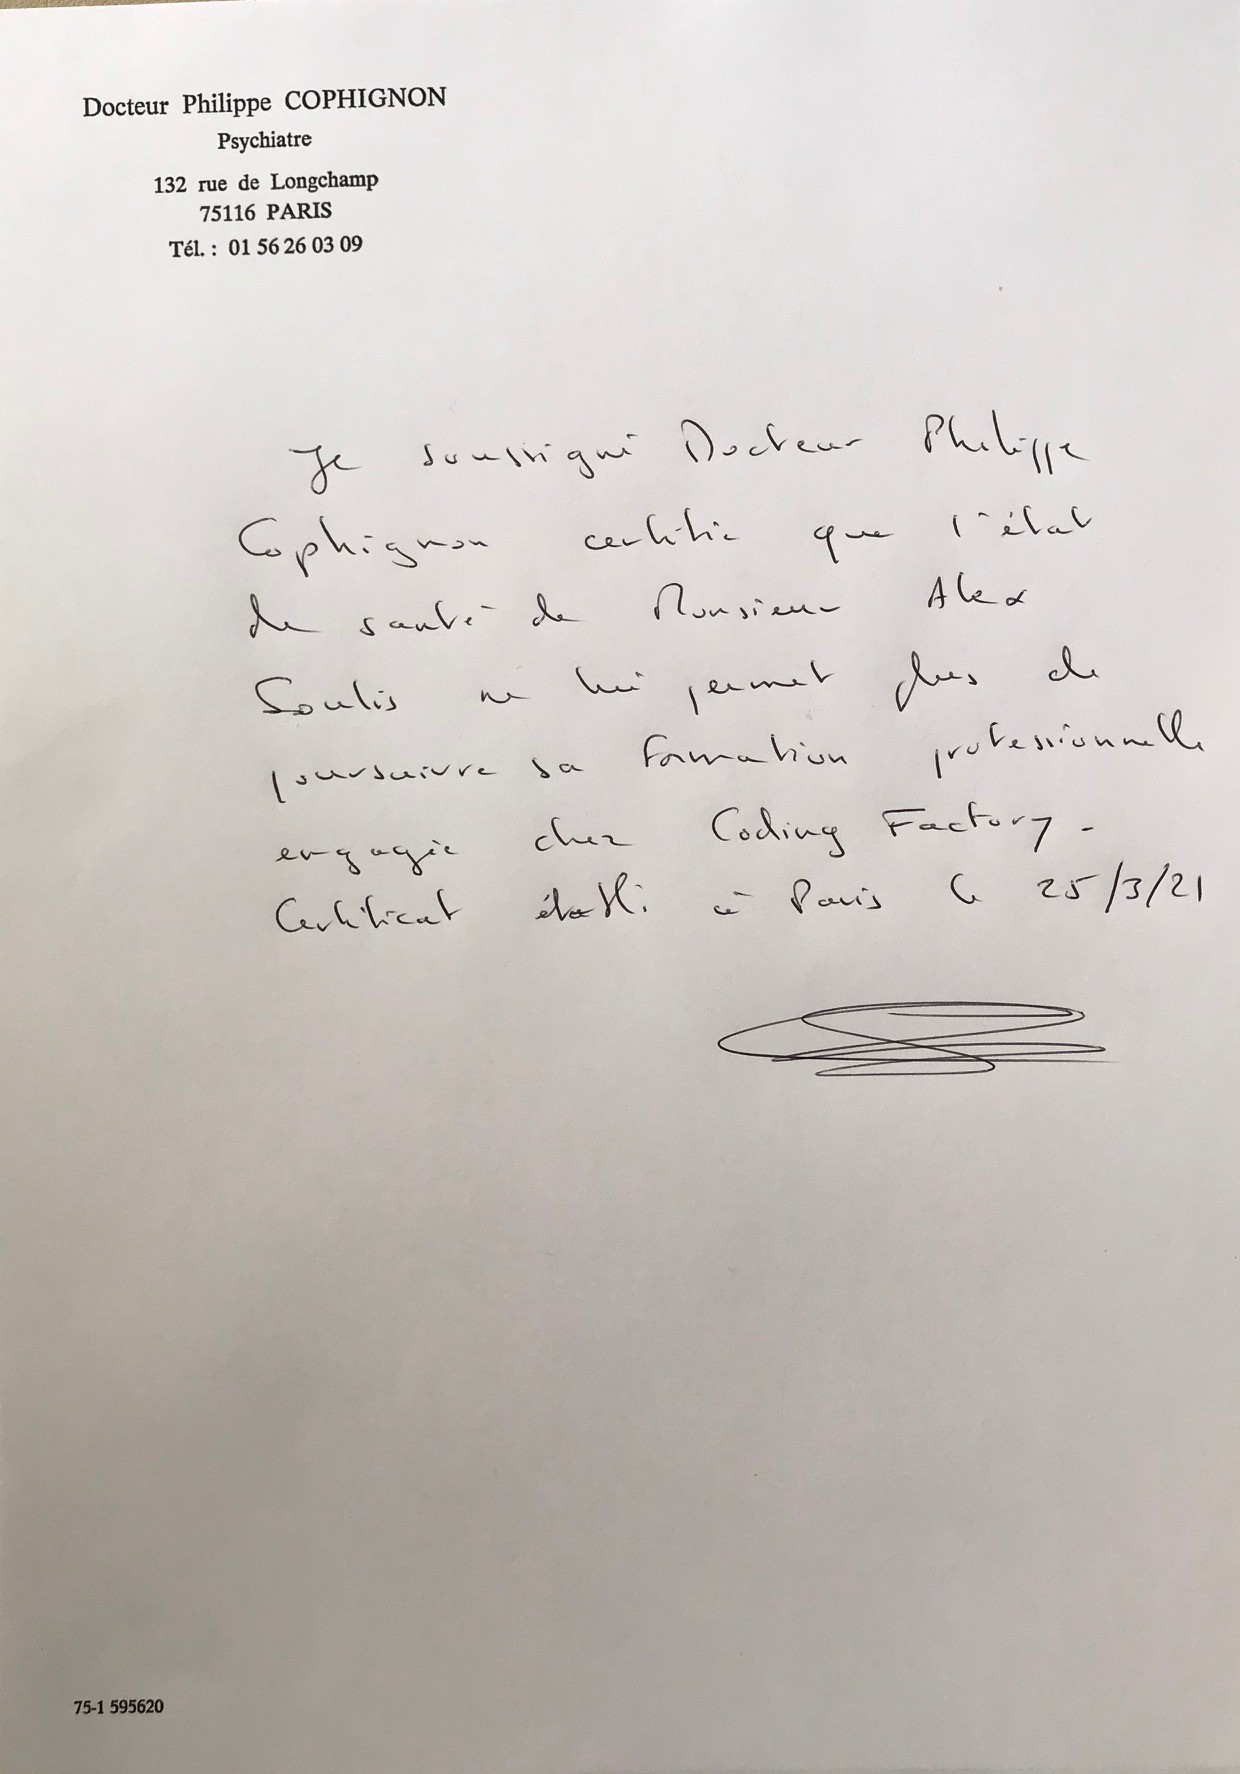 Docteur Philippe COPHIGNON
Psychiatre
132 rue de Longchamp
75116 PARIS
Tél. : 01 56 26 03 09
Je soussigné Docteur Philippe
Cophignon certifie que l'état
de santé de Monsieur Alex
Soulis ne lui permet plus de
poursuivre sa formation professionnelle
engagée chez Coding Factory.
Certificat établi à Paris le 25/3/21
75-1 595620